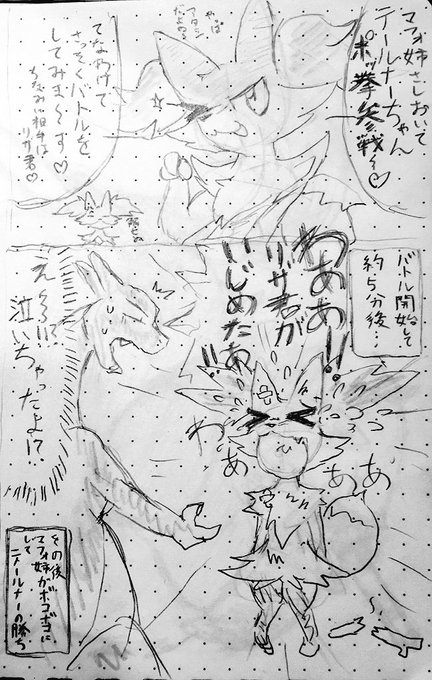 マフォ姉さしおいて
テールナーちゃん
ポッ拳参戦〜♡
やっぱ
アタシ
だよね〜
てなわけで
さっそくバトルを
してみま〜す♡
ちなみに相手は
リザ君♡
バトル開始して
約5分後…
わああ!!
リザ君が
いじめたあ!!
わ
あ
あ
あ
え〜!?
泣いちゃったよ!?
その後
マフォ姉がボコボコに
して
テールナーの勝ち